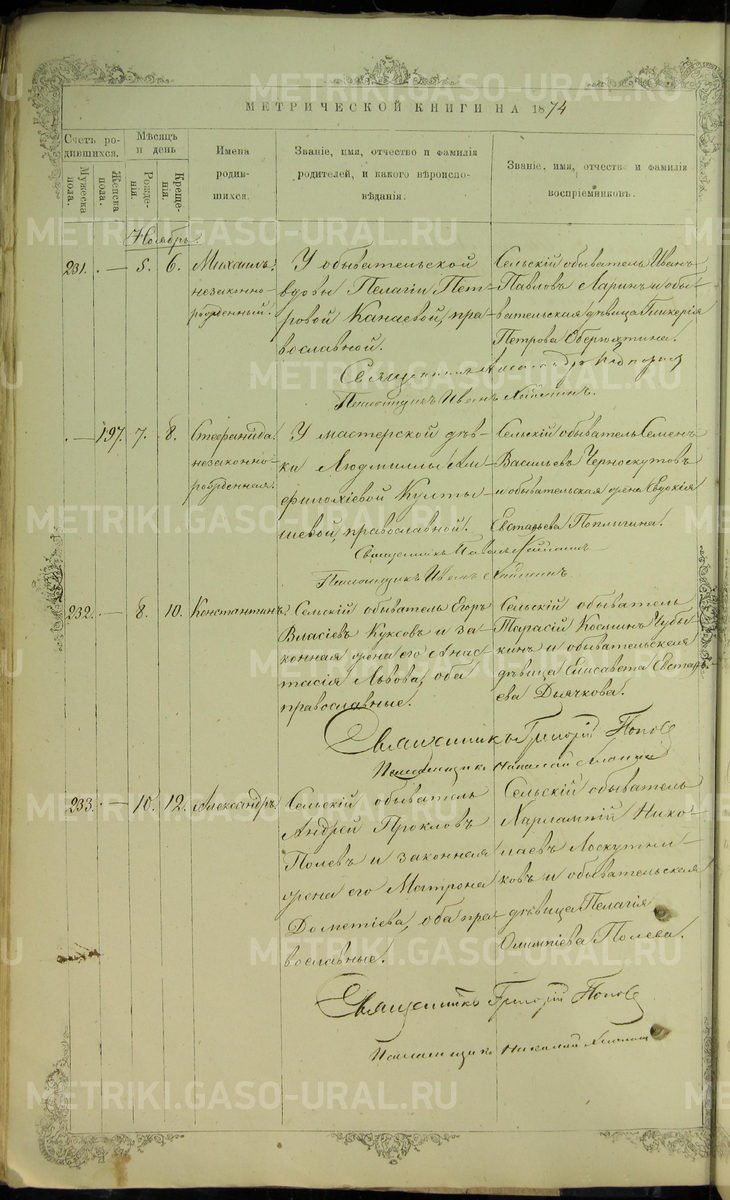 МЕТРИЧЕСКОЙ КНИГИ НА 1874
Счетъ ро-
дившихся.
Мужеска пола.
Женска пола.
Мѣсяцъ
и день
Рожде-
нія.
Креще-
нія.
Имена
родив-
шихся.
Званіе, имя, отчество и фамилія
родителей, и какого вѣроиспо-
вѣданія.
Званіе, имя, отчество и фамилія
воспріемниковъ.
Ноябрь.
231. — 5. 6. Михаилъ.
незаконно-
рожденный.
У обывательской
вдовы Пелагіи Пет-
ровой Канаевой, пра-
вославной.
Сельскій обыватель Иванъ
Павловъ Ларинъ и обы-
вательская дѣвица Гликерія
Петрова Оберюхтина.
Священникъ
Псаломщикъ Иванъ
— 197. 7. 8. Стефанида.
незаконно-
рожденная.
У мастерской дѣв-
ки Людмиллы Ам-
филохіевой Култы-
шевой, православной.
Сельскій обыватель Семенъ
Васильевъ Черноскутовъ
и обывательская жена Евдокія
Евстафьева Поплыгина.
Священникъ
Псаломщикъ Иванъ
232. — 8. 10. Константинъ.
Сельскій обыватель Егоръ
Власіевъ Куксовъ и за-
конная жена его Анас-
тасія Львова, оба
православные.
Сельскій обыватель
Тарасій Космин Чубы-
кинъ и обывательская
дѣвица Елисавета Евстафь-
ева Дьячкова.
Священникъ Григорій Попов
Псаломщикъ Николай
233. — 10. 12. Александръ.
Сельскій обыватель
Андрей Прокловъ
Полевъ и законная
жена его Матрона
Дометіева, оба пра-
вославные.
Сельскій обыватель
Харлампій Нико-
лаевъ Лоскутни-
ковъ и обывательская
дѣвица Пелагія
Олимпіева Полева.
Священникъ Григорій Попов
Псаломщикъ Николай
METRIKI.GASO-URAL.RU